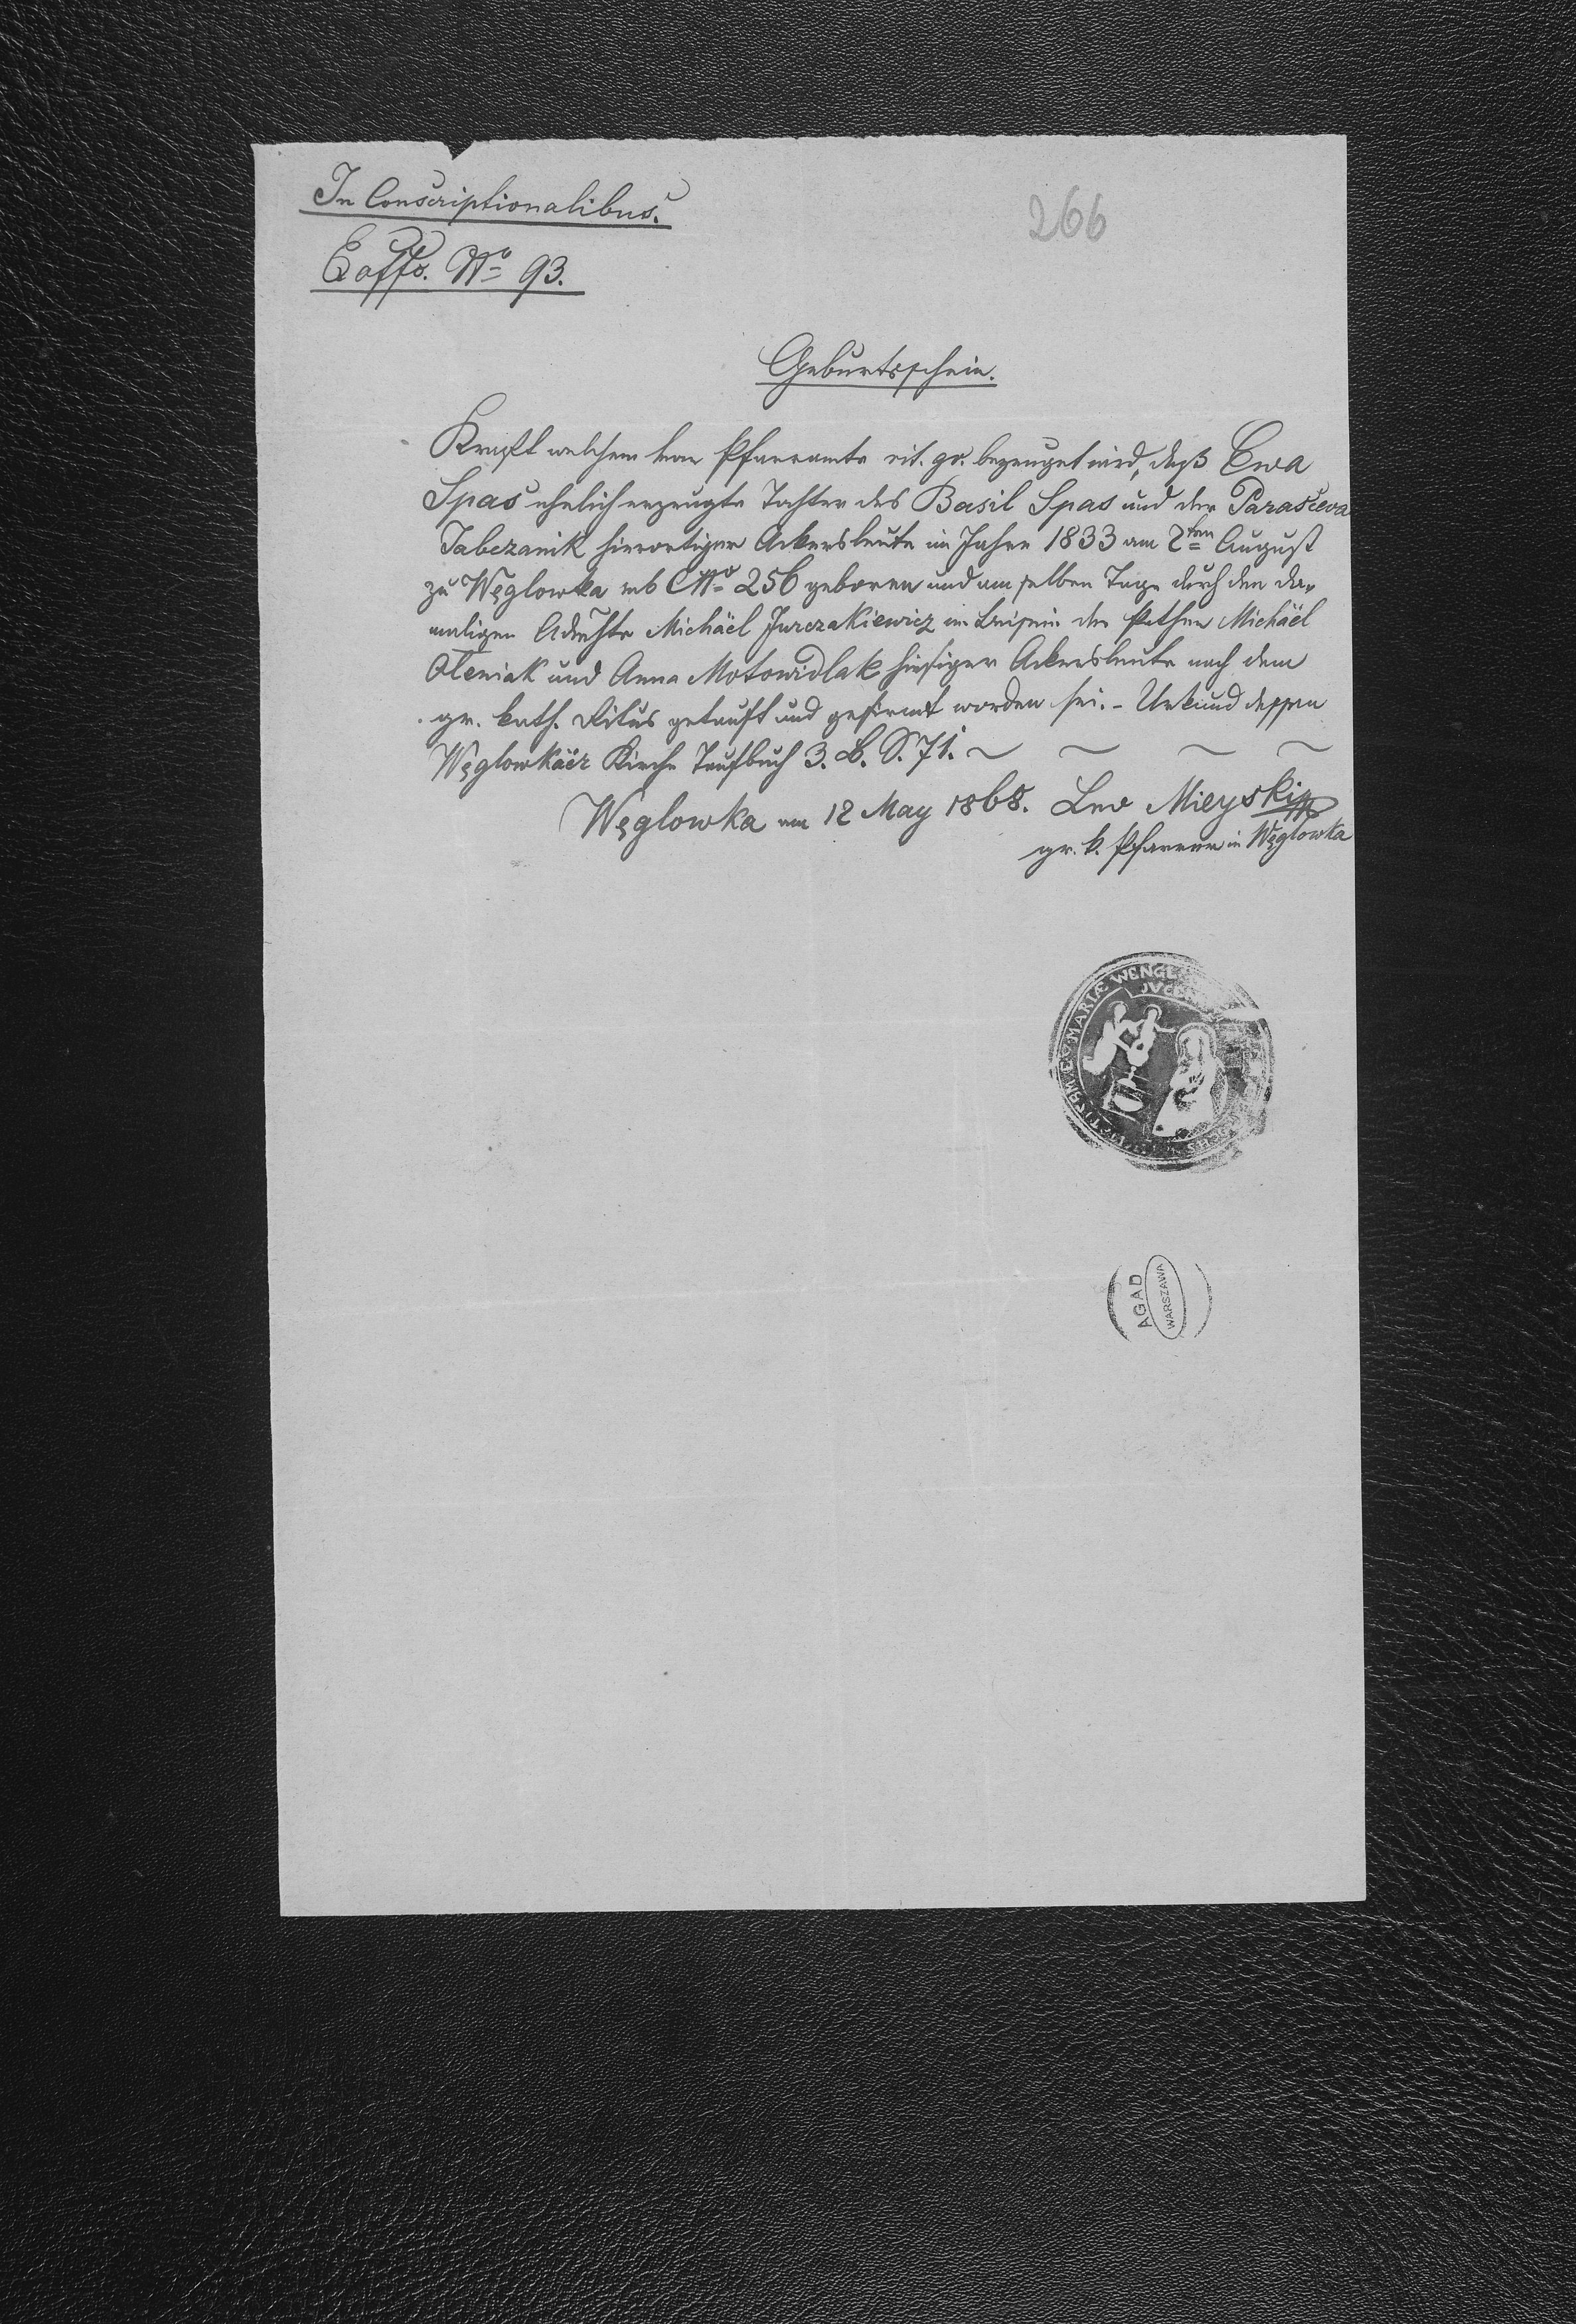 In Conscriptionalibus.
266
Ex offo. No 93.
Geburtsschein.
Kraft welchem vom Pfarramte rit. gr. bezeuget wird, daß Ewa
Spas ehelich erzeugte Tochter des Basil Spas und der Parasceva
Jabczanik hierortiger Ackersleute im Jahre 1833 am 2ten August
zu Węglowka sub CNo 256 geboren und am selben Tage durch den da-
maligen Michäel Jurczakiewicz im Beisein der Pathen Michäel
Oleniak und Anna Motowidlak hiesiger Ackersleute nach dem
gr. kath. Ritus getauft und gefirmt worden sei. - Urkund dessen
Węglowkäer Kirche Taufbuch 3. B. S. 71.
Węglowka am 12 May 1868. Leo Mieyski
gr. k. Pfarrer in Węglowka
MARIÆ WENGL
AGAD
WARSZAWA